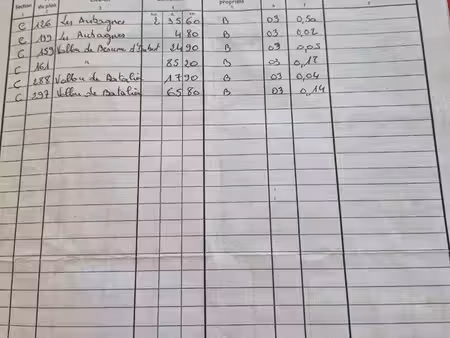 Section du plan propriété
C 126 Les Aubagnes 2 35 60 B 03 0,50
C 199 Les Aubagnes 4 80 B 03 0,02
C 159 Vallon de 24 90 B 03 0,05
C 161 " 85 20 B 03 0,18
C 288 Vallon de Batalin 17 90 B 03 0,04
C 297 Vallon de Batalin 65 80 B 03 0,14